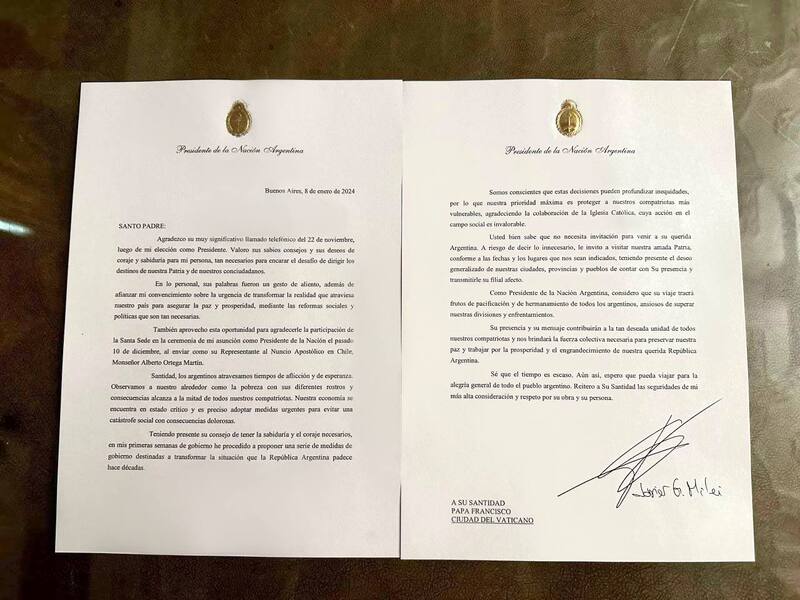 Presidente de la Nación Argentina
Buenos Aires, 8 de enero de 2024
SANTO PADRE:
Agradezco su muy significativo llamado telefónico del 22 de noviembre,
luego de mi elección como Presidente. Valoro sus sabios consejos y sus deseos de
coraje y sabiduría para mi persona, tan necesarios para encarar el desafío de dirigir los
destinos de nuestra Patria y de nuestros conciudadanos.
En lo personal, sus palabras fueron un gesto de aliento, además de
afianzar mi convencimiento sobre la urgencia de transformar la realidad que atraviesa
nuestro país para asegurar la paz y prosperidad, mediante las reformas sociales y
políticas que son tan necesarias.
También aprovecho esta oportunidad para agradecerle la participación de
la Santa Sede en la ceremonia de mi asunción como Presidente de la Nación el pasado
10 de diciembre, al enviar como su Representante al Nuncio Apostólico en Chile,
Monseñor Alberto Ortega Martín.
Santidad, los argentinos atravesamos tiempos de aflicción y de esperanza.
Observamos a nuestro alrededor como la pobreza con sus diferentes rostros y
consecuencias alcanza a la mitad de todos nuestros compatriotas. Nuestra economía se
encuentra en estado crítico y es preciso adoptar medidas urgentes para evitar una
catástrofe social con consecuencias dolorosas.
Teniendo presente su consejo de tener la sabiduría y el coraje necesarios,
en mis primeras semanas de gobierno he procedido a proponer una serie de medidas de
gobierno destinadas a transformar la situación que la República Argentina padece
hace décadas.
Presidente de la Nación Argentina
Somos conscientes que estas decisiones pueden profundizar inequidades,
por lo que nuestra prioridad máxima es proteger a nuestros compatriotas más
vulnerables, agradeciendo la colaboración de la Iglesia Católica, cuya acción en el
campo social es invalorable.
Usted bien sabe que no necesita invitación para venir a su querida
Argentina. A riesgo de decir lo innecesario, le invito a visitar nuestra amada Patria,
conforme a las fechas y los lugares que nos sean indicados, teniendo presente el deseo
generalizado de nuestras ciudades, provincias y pueblos de contar con Su presencia y
transmitirle su filial afecto.
Como Presidente de la Nación Argentina, considero que su viaje traerá
frutos de pacificación y de hermanamiento de todos los argentinos, ansiosos de superar
nuestras divisiones y enfrentamientos.
Su presencia y su mensaje contribuirán a la tan deseada unidad de todos
nuestros compatriotas y nos brindará la fuerza colectiva necesaria para preservar nuestra
paz y trabajar por la prosperidad y el engrandecimiento de nuestra querida República
Argentina.
Sé que el tiempo es escaso. Aún así, espero que pueda viajar para la
alegría general de todo el pueblo argentino. Reitero a Su Santidad las seguridades de mi
más alta consideración y respeto por su obra y su persona.
Javier G. Milei
A SU SANTIDAD
PAPA FRANCISCO
CIUDAD DEL VATICANO